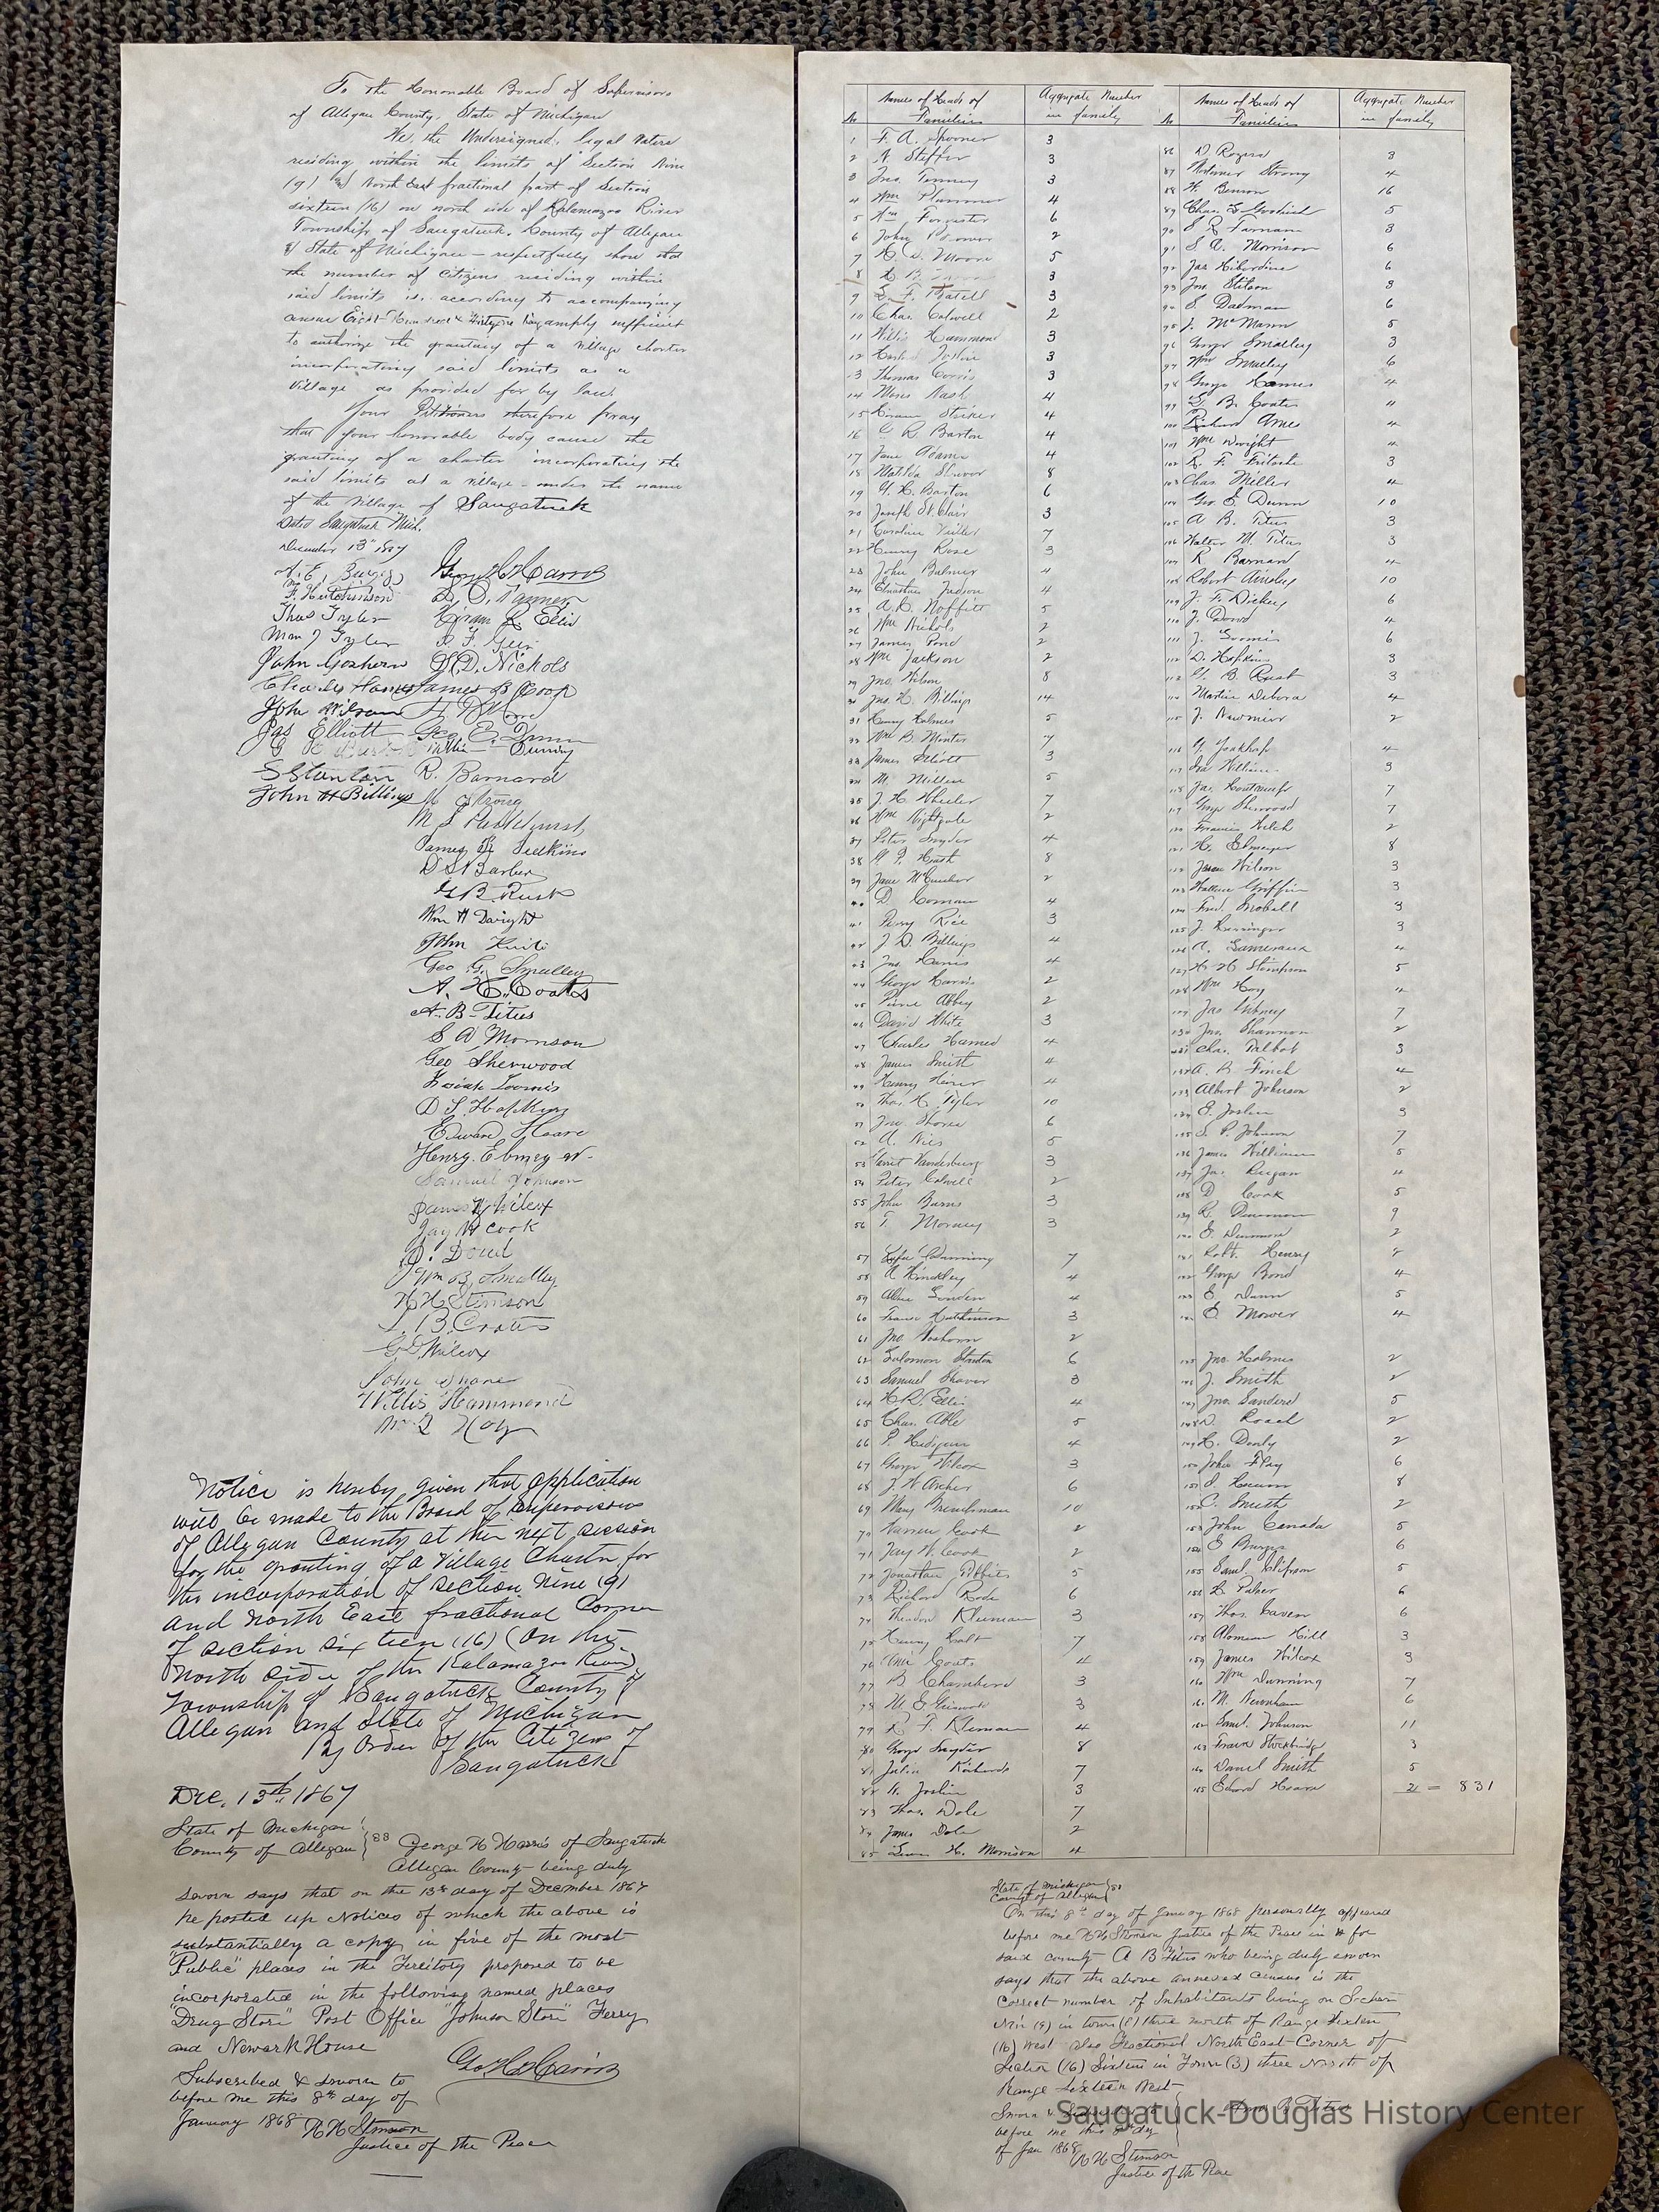 To the Honorable Board of Supervisors
of Allegan County, State of Michigan
We, the Undersigned, legal Voters
residing within the limits of Section Nine
(9) & North East fractional part of Section
sixteen (16) on north side of Kalamazoo River
Township of Saugatuck, County of Allegan
& State of Michigan – respectfully show that
the number of Citizens residing within
said limits is, according to accompanying
census Eight Hundred & thirty one being amply sufficient
to authorize the granting of a village charter
incorporating said limits as a
Village as provided for by law.
Your Petitioners therefore pray
that your honorable body cause the
granting of a charter incorporating the
said limits as a village – under the name
of the Village of Saugatuck
Dated Saugatuck Mich.
December 13th 1867
Geo H Harris
F. Hutchinson
Thos Tyler Hiram R. Ellis
Tyler
John Goshorn S. D. Nichols
James B Coop
John Wilson
Jas Elliott Geo. E. Dunn
S Stanton R. Barnard
John H Billings M Strong
D S Barber
G B Rusk
Wm H Dwight
John
Geo G. Smalley
A. H. Coates
A. B. Titus
S A Morrison
Geo Sherwood
Josiah Loomis
D. S. Hopkins
Edward Hoare
Henry Ebmeyer
Samuel Johnson
James H Wilcox
Jay W Cook
J. Dowd
Wm B. Smalley
H H Stimson
L. B. Coates
G D Wilcox
John Shane
Willis Hammond
Wm Hoy
Notice is hereby given that application
will be made to the Board of Supervisors
of Allegan County at their next session
for the granting of a Village Charter for
the incorporation of section Nine (9)
and North East fractional Corner
of section sixteen (16) (On the
North side of the Kalamazoo River)
Township of Saugatuck County of
Allegan and State of Michigan
By Order of the Citizens of
Saugatuck
Dec, 13th 1867
State of Michigan
County of Allegan } SS George H Harris of Saugatuck
Allegan County – being duly
sworn says that on the 13th day of December 1867
he posted up Notices of which the above is
substantially a copy in five of the most
"Public" places in the Territory proposed to be
incorporated in the following named places
"Drug Store" Post Office "Johnson Store" Ferry
and Newark House
Geo H Harris
Subscribed & sworn to
before me this 8th day of
January 1868 H H Stimson
Justice of the Peace
No Names of Heads of Families Aggregate Number in family
1 F. A. Spooner 3
2 N. Steffer 3
3 Jno. Tenney 3
4 Wm Plummer 4
5 Wm Forrester 6
6 John 2
7 H. D. Moore 5
8 3
9 3
10 Chas. Colwell 2
11 Willis Hammond 3
12 Joslin 3
13 Thomas 3
14 Moses Nash 4
15 Hiram Striker 4
16 R Barton 4
17 Jane Adams 4
18 Matilda Shaver 8
19 G. H. Barton 6
20 Joseph St. Clair 3
21 Caroline 7
22 Henry Rose 3
23 John Balmer 4
24 Judson 4
25 A. C. Moffitt 5
26 Wm Nichols 2
27 James Pond 2
28 Wm Jackson 2
29 Jno. Wilson 8
30 Jno. H. Billings 14
31 Henry Holmes 5
32 Wm B. Minter 7
33 James Elliott 3
34 M. Miller 5
35 J. H. Wheeler 7
36 Wm Nightgale 2
37 Peter Snyder 4
38 8
39 Jane 2
40 D. Coman 4
41 Perry Rice 3
42 J. D. Billings 4
43 Jno. Harris 4
44 George Harris 2
45 Abbey 2
46 David White 3
47 Charles Hamed 4
48 James Smith 4
49 Henry 4
50 Thos. H. Tyler 10
51 Jno Shorer 6
52 A. Nies 5
53 Garret Vandenburg 3
54 Peter Colwell 2
55 John Burns 3
56 T. Morney 3
57 Dunning 7
58 A Hinckley 4
59 4
60 Hutchinson 3
61 Jno. Goshorn 2
62 Solomon Stanton 6
63 Samuel Shaver 3
64 H. R. Ellis 4
65 Chas. Able 5
66 4
67 George Wilcox 3
68 J. W. Archer 6
69 Mary 10
70 Warren Cook 2
71 Jay W. Cook 2
72 Jonathan 5
73 Richard Rode 6
74 Theodore Kleiman 3
75 Henry Holt 7
76 Coats 4
77 B. Chambers 3
78 3
79 F. Kleiman 4
80 George Snyder 8
81 Julia Richards 7
82 Joslin 3
83 Thos. Dole 7
84 James Dole 2
85 H. Morrison 4
No Names of Heads of Families Aggregate Number in family
86 D. Rogers 3
87 Mortimer Strong 4
88 H. Benson 16
89 Chas. 5
90 Farnam 3
91 S. A. Morrison 6
92 Jas. 6
93 Jno. Stilson 3
94 S. Dadman 6
95 J. McMann 5
96 George Smalley 3
97 Wm Smalley 6
98 George Hames 4
99 L. B. Coates 4
100 Richard Ames 4
101 Wm Dwight 4
102 R. F. Fritsche 3
103 Chas. Miller 4
104 Geo E. Dunn 10
105 A B. Titus 3
106 Walter M. Titus 3
107 R Barnard 4
108 Robert Ainsley 10
109 J. F. Dickey 6
110 J. Dowd 4
111 J. Loomis 6
112 D. Hopkins 3
113 G. B. Rusk 3
114 Martin Debora 4
115 J. Newmier 2
116 4
117 Ira Williams 3
118 Jas. 7
119 George Sherwood 7
120 Francis Welch 2
121 H. Ebmeyer 8
122 Jason Wilson 3
123 Wallace Griffin 3
124 Fred. 3
125 J. 3
126 A. 4
127 H. H. Stimpson 5
128 Wm Hoy 4
129 Jas 7
130 Jno. Shannon 2
131 Chas. Talbot 3
132 A. B Finch 4
133 Albert Johnson 2
134 E. Joslin 3
135 S. P. Johnson 7
136 James Williams 5
137 Jas. Reegan 4
138 D Cook 5
139 9
140 E. 2
141 Robt. Henry
142 George Bond 4
143 E. Dunn 5
144 E Mower 4
145 Jno. Holmes 2
146 J. Smith 2
147 Jno. Sanders 5
148 Roach 2
149 H. Donly 2
150 John F 6
151 8
152 C. Smith 2
153 John Canada 5
154 E Burgess 6
155 Saml. 5
156 6
157 Thos. Caven 6
158 Hill 3
159 James Wilcox 3
160 Wm Dunning 7
161 M. Newnham 6
162 Saml. Johnson 11
163 Francis Stockbridge 3
164 Daniel Smith 5
165 Edward Hoare 2 = 831
State of Michigan
County of Allegan } SS
On this 8th day of January 1868 personally appeared
before me H H Stimson Justice of the Peace in & for
said county A B Titus who being duly sworn
says that the above annexed census is the
correct number of Inhabitants living on Section
Nine (9) in town three north of Range Sixteen
(16) West also Fractional North East Corner of
Section (16) Sixteen in Town (3) three North of
Range sixteen West
Sworn & Subscribed to
before me this 8th day
of Jan 1868
H H Stimson
Justice of the Peace
Saugatuck-Douglas History Center